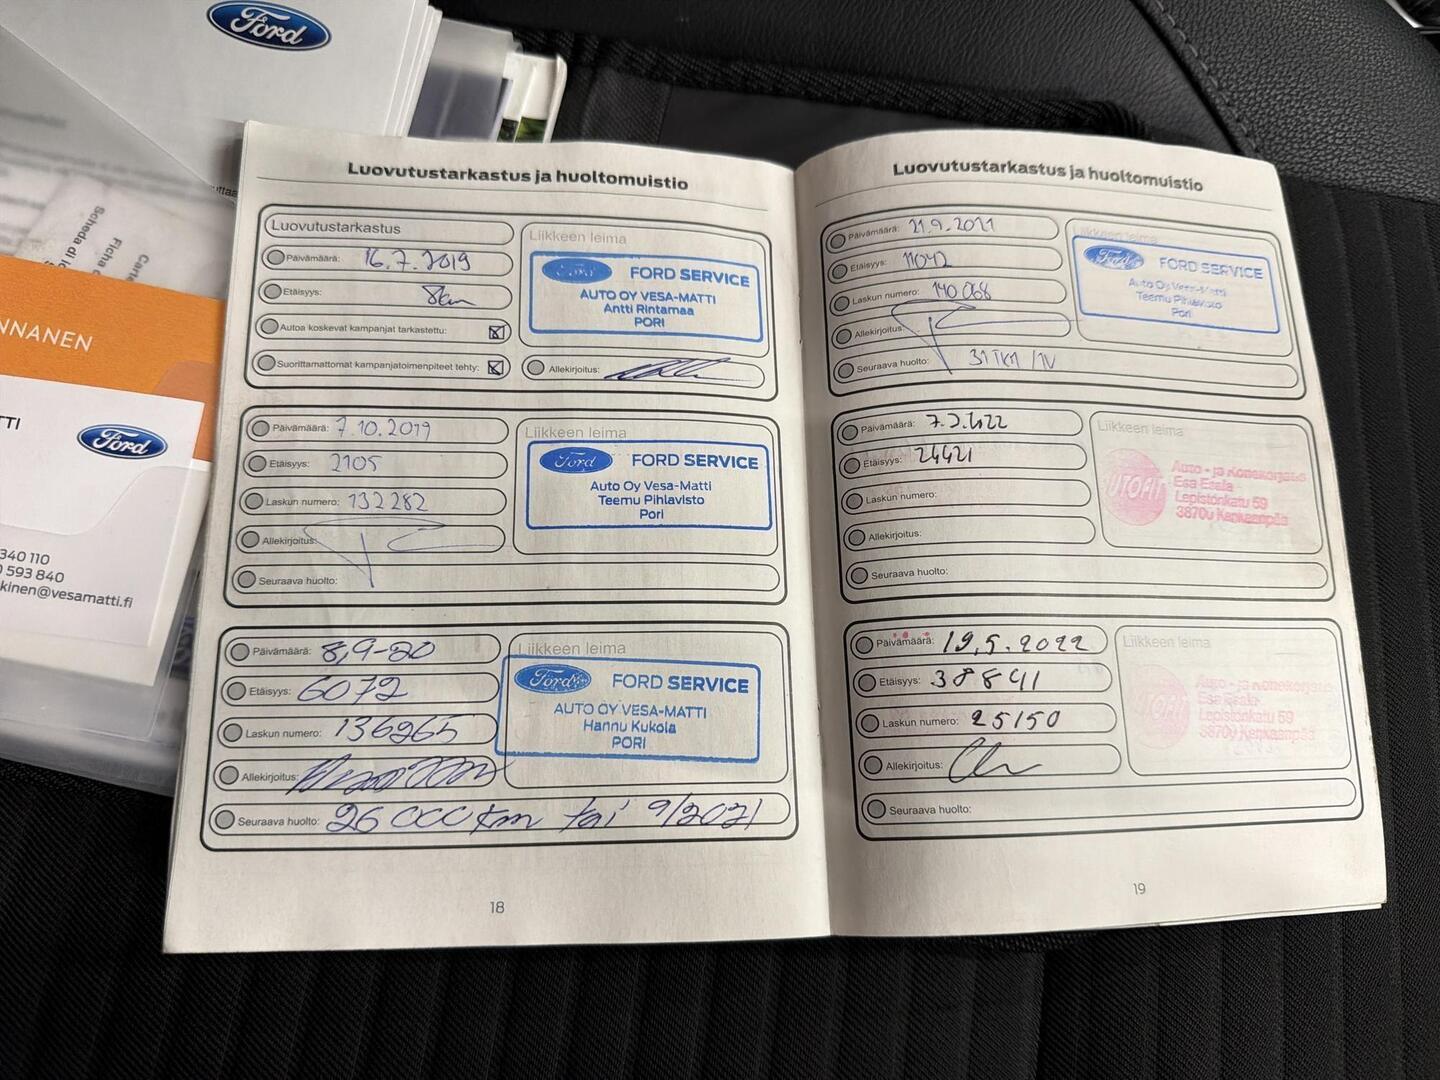 Ford
NNANEN
TTI
Ford
340 110
593 840
kinen@vesamatti.fi
Scheda di
Ficha
Luovutustarkastus ja huoltomuistio
Luovutustarkastus
Päivämäärä: 16.7.2019
Etäisyys: 8km
Autoa koskevat kampanjat tarkastettu:
Suorittamattomat kampanjatoimenpiteet tehty:
Liikkeen leima
Ford FORD SERVICE
AUTO OY VESA-MATTI
Antti Rintamaa
PORI
Allekirjoitus:
Päivämäärä: 7.10.2019
Etäisyys: 2105
Laskun numero: 132282
Allekirjoitus:
Seuraava huolto:
Liikkeen leima
Ford FORD SERVICE
Auto Oy Vesa-Matti
Teemu Pihlavisto
Pori
Päivämäärä: 8,9-20
Etäisyys: 6072
Laskun numero: 136265
Allekirjoitus:
Seuraava huolto: 26 000 km tai 9/2021
Liikkeen leima
Ford FORD SERVICE
AUTO OY VESA-MATTI
Hannu Kukola
PORI
18
Luovutustarkastus ja huoltomuistio
Päivämäärä: 21.9.2021
Etäisyys: 11042
Laskun numero: 140068
Allekirjoitus:
Seuraava huolto: 31 TKM / 1V
Liikkeen leima
Ford FORD SERVICE
Auto Oy Vesa-Matti
Teemu Pihlavisto
Pori
Päivämäärä:
Etäisyys: 24421
Laskun numero:
Allekirjoitus:
Seuraava huolto:
Liikkeen leima
Auto - ja Konekorjaus
Esa Esala
Lepistönkatu 59
38700 Kankaanpää
Päivämäärä: 19.5.2022
Etäisyys: 38841
Laskun numero: 25150
Allekirjoitus:
Seuraava huolto:
Liikkeen leima
Auto - ja Konekorjaus
Lepistönkatu 59
38700 Kankaanpää
19